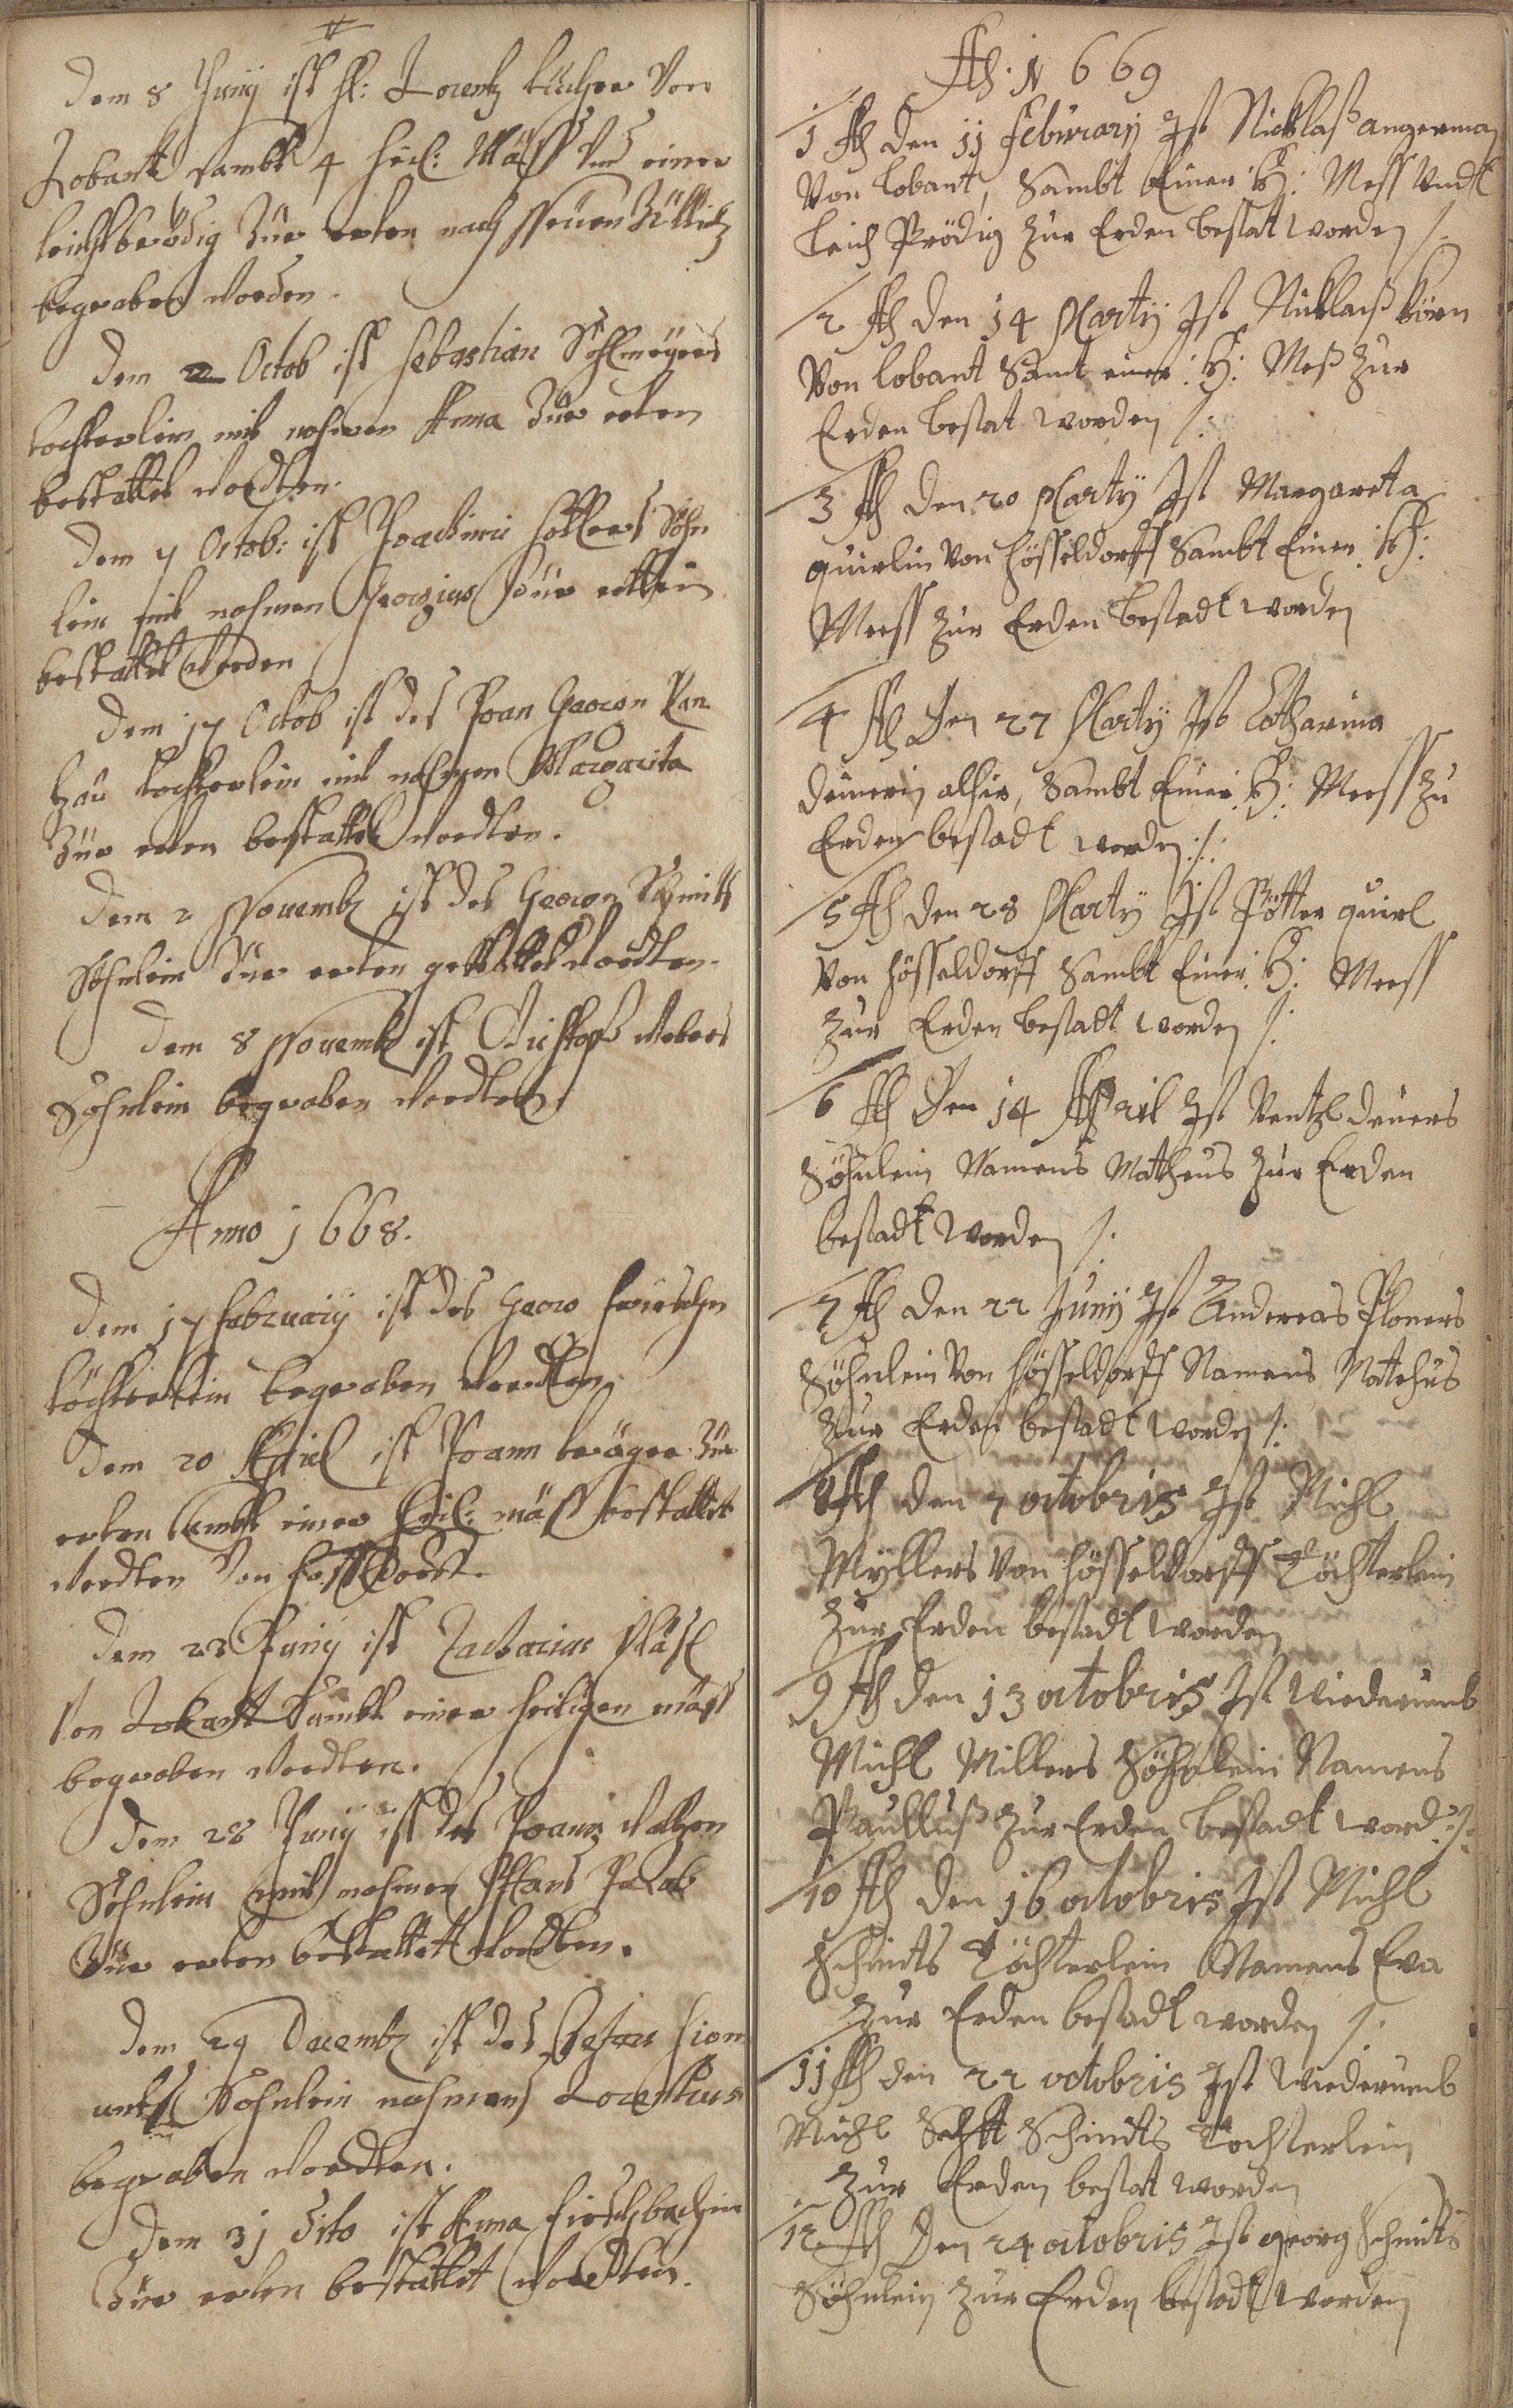 Dem 8 Junij ist H: Lorentz lücher Von
Lobant sambt 4 heil: Mäss Vnd einer
leichtbrödig Zur erten nach Neuen Züllitz
begraben worden.
Dem 2 Octob ist Sebastian
tochterlein mit nahmen Anna Zur erten
bestattet wordten.
Dem 7 Octob: ist Joachimi Söhn
lein mit nahmen Georgius Zur erthen
bestattet worden
Dem 17 Octob ist des Joan Georgn
Zau tochterlein mit nahmen Margarita
Zur erten bestattet wordten.
Dem 2 Novemb ist des Georgn Schmitts
Söhnlein Zur erten bestattet wordten.
Dem 8 Novemb ist Christoph webers
Söhnlein begraben wordten
Anno 1668.
Dem 17 Februarij ist des Georg
töchterlein begraben wordten.
Dem 20 April ist Joann Zur
erten sambt einer heil: mäss bestattet
wordten Von
Dem 23 Junij ist Zacharias
Von Lobant Sambt einer heiligen mäss
begraben wordten.
Dem 28 Junij ist des Joannis
Söhnlein mit nahmen Hans Jacob
Zur erten bestattet wordten.
Dem 29 Decemb ist des
Söhnlein nahmens Lorentius
begraben wordten.
Dem 31 Dito ist Anna Hirschbachin
Zur erten bestattet wordten.
A: 1669
1 A den 11 Februarij Ist Nicklaß angerman
Von lobant, Sambt Einer H: Mess Vndt
Leich Prödig Zur Erden bestat worden
2 A den 14 Martij Ist Nicklaß
Von lobant Sambt einer H: Meß Zur
Erden bestat worden
3 A den 20 Martij Ist Margareta
quirlin Von Hösseldorff Sambt Einer H:
Mess Zur Erden bestadt worden
4 A Den 27 Martij Ist Catharina
alhir, Sambt Einer H: Mess Zu
Erden bestadt worden
5 A den 28 Martij Ist Pötter quirl
Von Hösseldorff Sambt Einer H: Mess
Zur Erden bestadt worden
6 A Den 14 April Ist Ventzl
Söhnlein Namens Matheus Zur Erden
bestadt worden
7 A den 22 Junij Ist Andereas Ploners
Söhnlein Von Hösseldorff Namens Matehus
Zur Erden bestadt worden
8 A den 7 octobris Ist Michl
Myllers Von Hösseldorff Töchterlein
Zur Erden bestadt worden
9 A den 13 octobris Ist Wiederumb
Michl Millers Söhnlein Namens
Paulluß Zur Erden bestadt word:
10 A den 16 octobris Ist Michl
Schmidts Töchterlein Namens Eva
Zur Erden bestadt worden
11 A den 22 octobris Ist Wiederumb
Michl Schmidts Tochterlein
Zur Erden bestat worden
12 A Den 24 octobris Ist georg Schmidts
Söhnlein Zur Erden bestadt worden